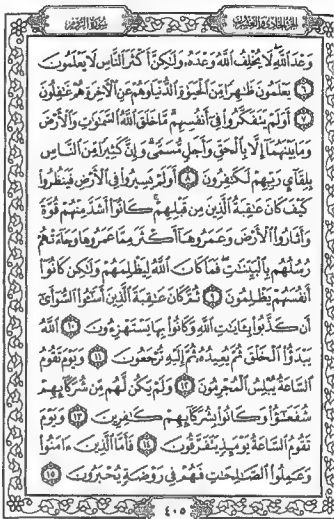 الجزء الحادي والعشرون سورة الروم
وَعْدَ ٱللَّهِ لَا يُخْلِفُ ٱللَّهُ وَعْدَهُۥ وَلَٰكِنَّ أَكْثَرَ ٱلنَّاسِ لَا يَعْلَمُونَ
٦ يَعْلَمُونَ ظَٰهِرًا مِّنَ ٱلْحَيَوٰةِ ٱلدُّنْيَا وَهُمْ عَنِ ٱلْءَاخِرَةِ هُمْ غَٰفِلُونَ
٧ أَوَلَمْ يَتَفَكَّرُوا۟ فِىٓ أَنفُسِهِم مَّا خَلَقَ ٱللَّهُ ٱلسَّمَٰوَٰتِ وَٱلْأَرْضَ
وَمَا بَيْنَهُمَآ إِلَّا بِٱلْحَقِّ وَأَجَلٍ مُّسَمًّى وَإِنَّ كَثِيرًا مِّنَ ٱلنَّاسِ
بِلِقَآئِ رَبِّهِمْ لَكَٰفِرُونَ ٨ أَوَلَمْ يَسِيرُوا۟ فِى ٱلْأَرْضِ فَيَنظُرُوا۟
كَيْفَ كَانَ عَٰقِبَةُ ٱلَّذِينَ مِن قَبْلِهِمْ كَانُوٓا۟ أَشَدَّ مِنْهُمْ قُوَّةً
وَأَثَارُوا۟ ٱلْأَرْضَ وَعَمَرُوهَآ أَكْثَرَ مِمَّا عَمَرُوهَا وَجَآءَتْهُمْ
رُسُلُهُم بِٱلْبَيِّنَٰتِ فَمَا كَانَ ٱللَّهُ لِيَظْلِمَهُمْ وَلَٰكِن كَانُوٓا۟
أَنفُسَهُمْ يَظْلِمُونَ ٩ ثُمَّ كَانَ عَٰقِبَةَ ٱلَّذِينَ أَسَٰٓـُٔوا۟ ٱلسُّوٓأَىٰٓ
أَن كَذَّبُوا۟ بِـَٔايَٰتِ ٱللَّهِ وَكَانُوا۟ بِهَا يَسْتَهْزِءُونَ ١٠ ٱللَّهُ
يَبْدَؤُا۟ ٱلْخَلْقَ ثُمَّ يُعِيدُهُۥ ثُمَّ إِلَيْهِ تُرْجَعُونَ ١١ وَيَوْمَ تَقُومُ
ٱلسَّاعَةُ يُبْلِسُ ٱلْمُجْرِمُونَ ١٢ وَلَمْ يَكُن لَّهُم مِّن شُرَكَآئِهِمْ
شُفَعَٰٓؤُا۟ وَكَانُوا۟ بِشُرَكَآئِهِمْ كَٰفِرِينَ ١٣ وَيَوْمَ
تَقُومُ ٱلسَّاعَةُ يَوْمَئِذٍ يَتَفَرَّقُونَ ١٤ فَأَمَّا ٱلَّذِينَ ءَامَنُوا۟
وَعَمِلُوا۟ ٱلصَّٰلِحَٰتِ فَهُمْ فِى رَوْضَةٍ يُحْبَرُونَ ١٥
٤٠٥